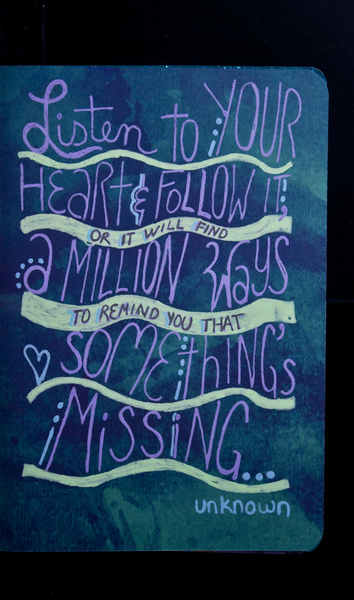 Listen to YOUR
HEART & FOLLOW IT;
OR IT WILL FIND
a MILLION WAYS
TO REMIND YOU THAT
SOMETHING'S
MISSING...
unknown